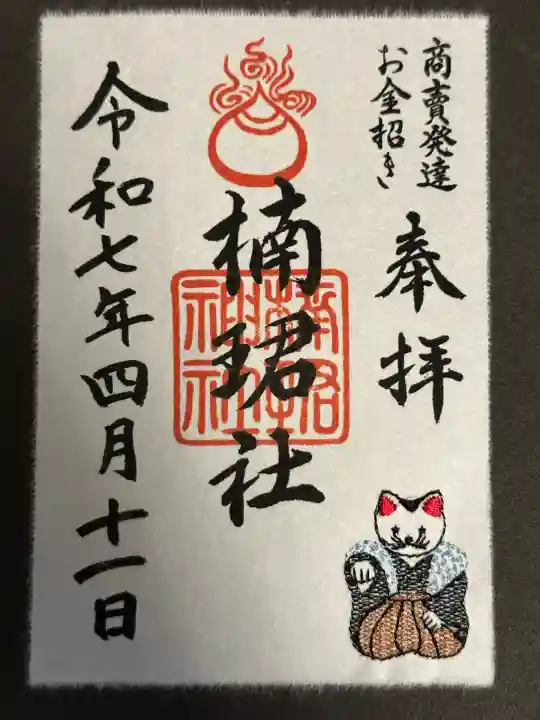 商賣発達
お金招き
奉拝
楠珺社
楠珺神社
令和七年四月十一日